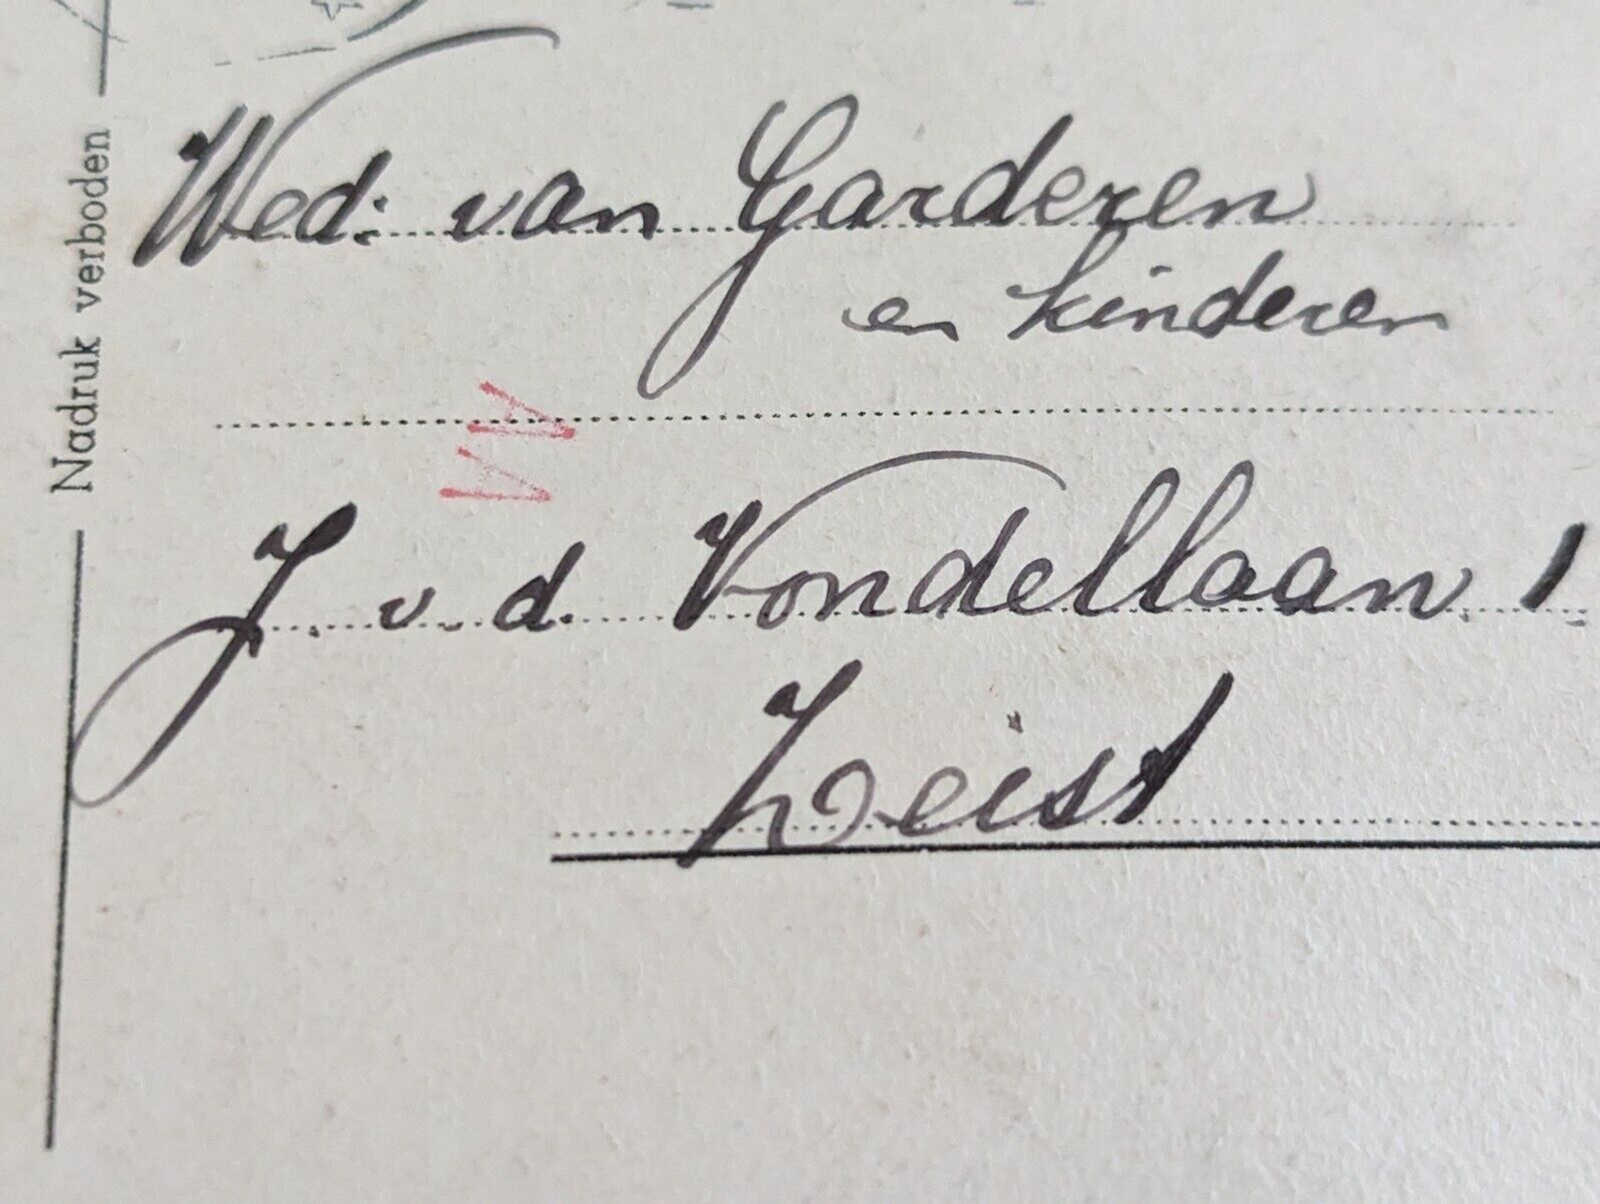 Wed: van Garderen
en kinderen
J. v. d. Vondellaan 1.
Zeist
Nadruk verboden